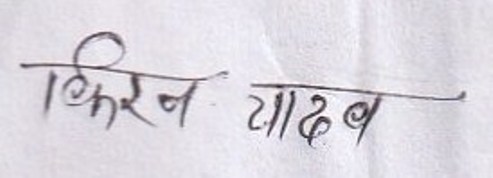 किरन यादव